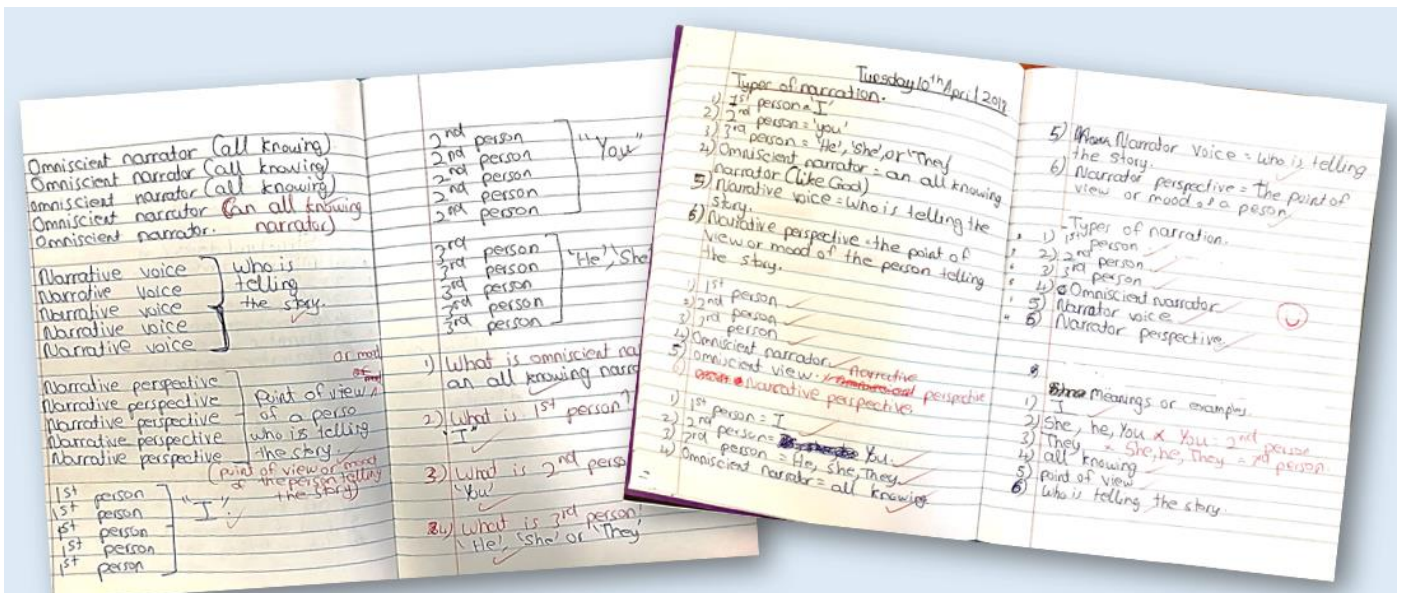 Omniscient narrator (all knowing)
Omniscient narrator (all knowing)
omniscient narrator (all knowing)
Omniscient narrator (an all knowing
Omniscient narrator. narrator)
Narrative voice
Narrative voice
Narrative voice
Narrative voice
Narrative voice
who is
telling
the story.
Narrative perspective
Narrative perspective
Narrative perspective
Narrative perspective
Narrative perspective
or mood
point of view
of a perso
who is telling
the story.
(point of view or mood
of the person telling
the story)
1st person
1st person
1st person
1st person
1st person
"I"
2nd person
2nd person
2nd person
2nd person
2nd person
"You"
3rd person
3rd person
3rd person
3rd person
3rd person
'He', 'She'
1) What is omniscient na
an all knowing narr
2) What is 1st person?
"I"
3) What is 2nd perso
'You'
4) What is 3rd person
'He', 'She' or 'They
Tuesday 10th April 2018
Types of narration.
1) 1st person = 'I'
2) 2nd person = 'you'
3) 3rd person = 'He', 'She', or 'They
4) Omniscient narrator = an all knowing
narrator (like God)
5) Narrative voice = who is telling the
story.
6) Narrative perspective = the point of
view or mood of the person telling
the story.
1) 1st person
2) 2nd person
3) 3rd person
4) Omniscient narrator
5) omniscient view. narrative perspective
6) Narrative perspective.
1) 1st person = I
2) 2nd person = You.
3) 3rd person = He, She, They
4) Omniscient narrator = all knowing
5) Narrator voice = who is telling
the story.
6) Narrator perspective = the point of
view or mood of a peson
Types of narration.
1) 1st person
2) 2nd person
3) 3rd person
4) Omniscient narrator
5) Narrator voice
6) Narrator perspective
Meanings or examples
1) I
2) She, he, You x You = 2nd person
3) They x She, he, They = 3rd person.
4) all knowing
5) point of view
6) who is telling the story